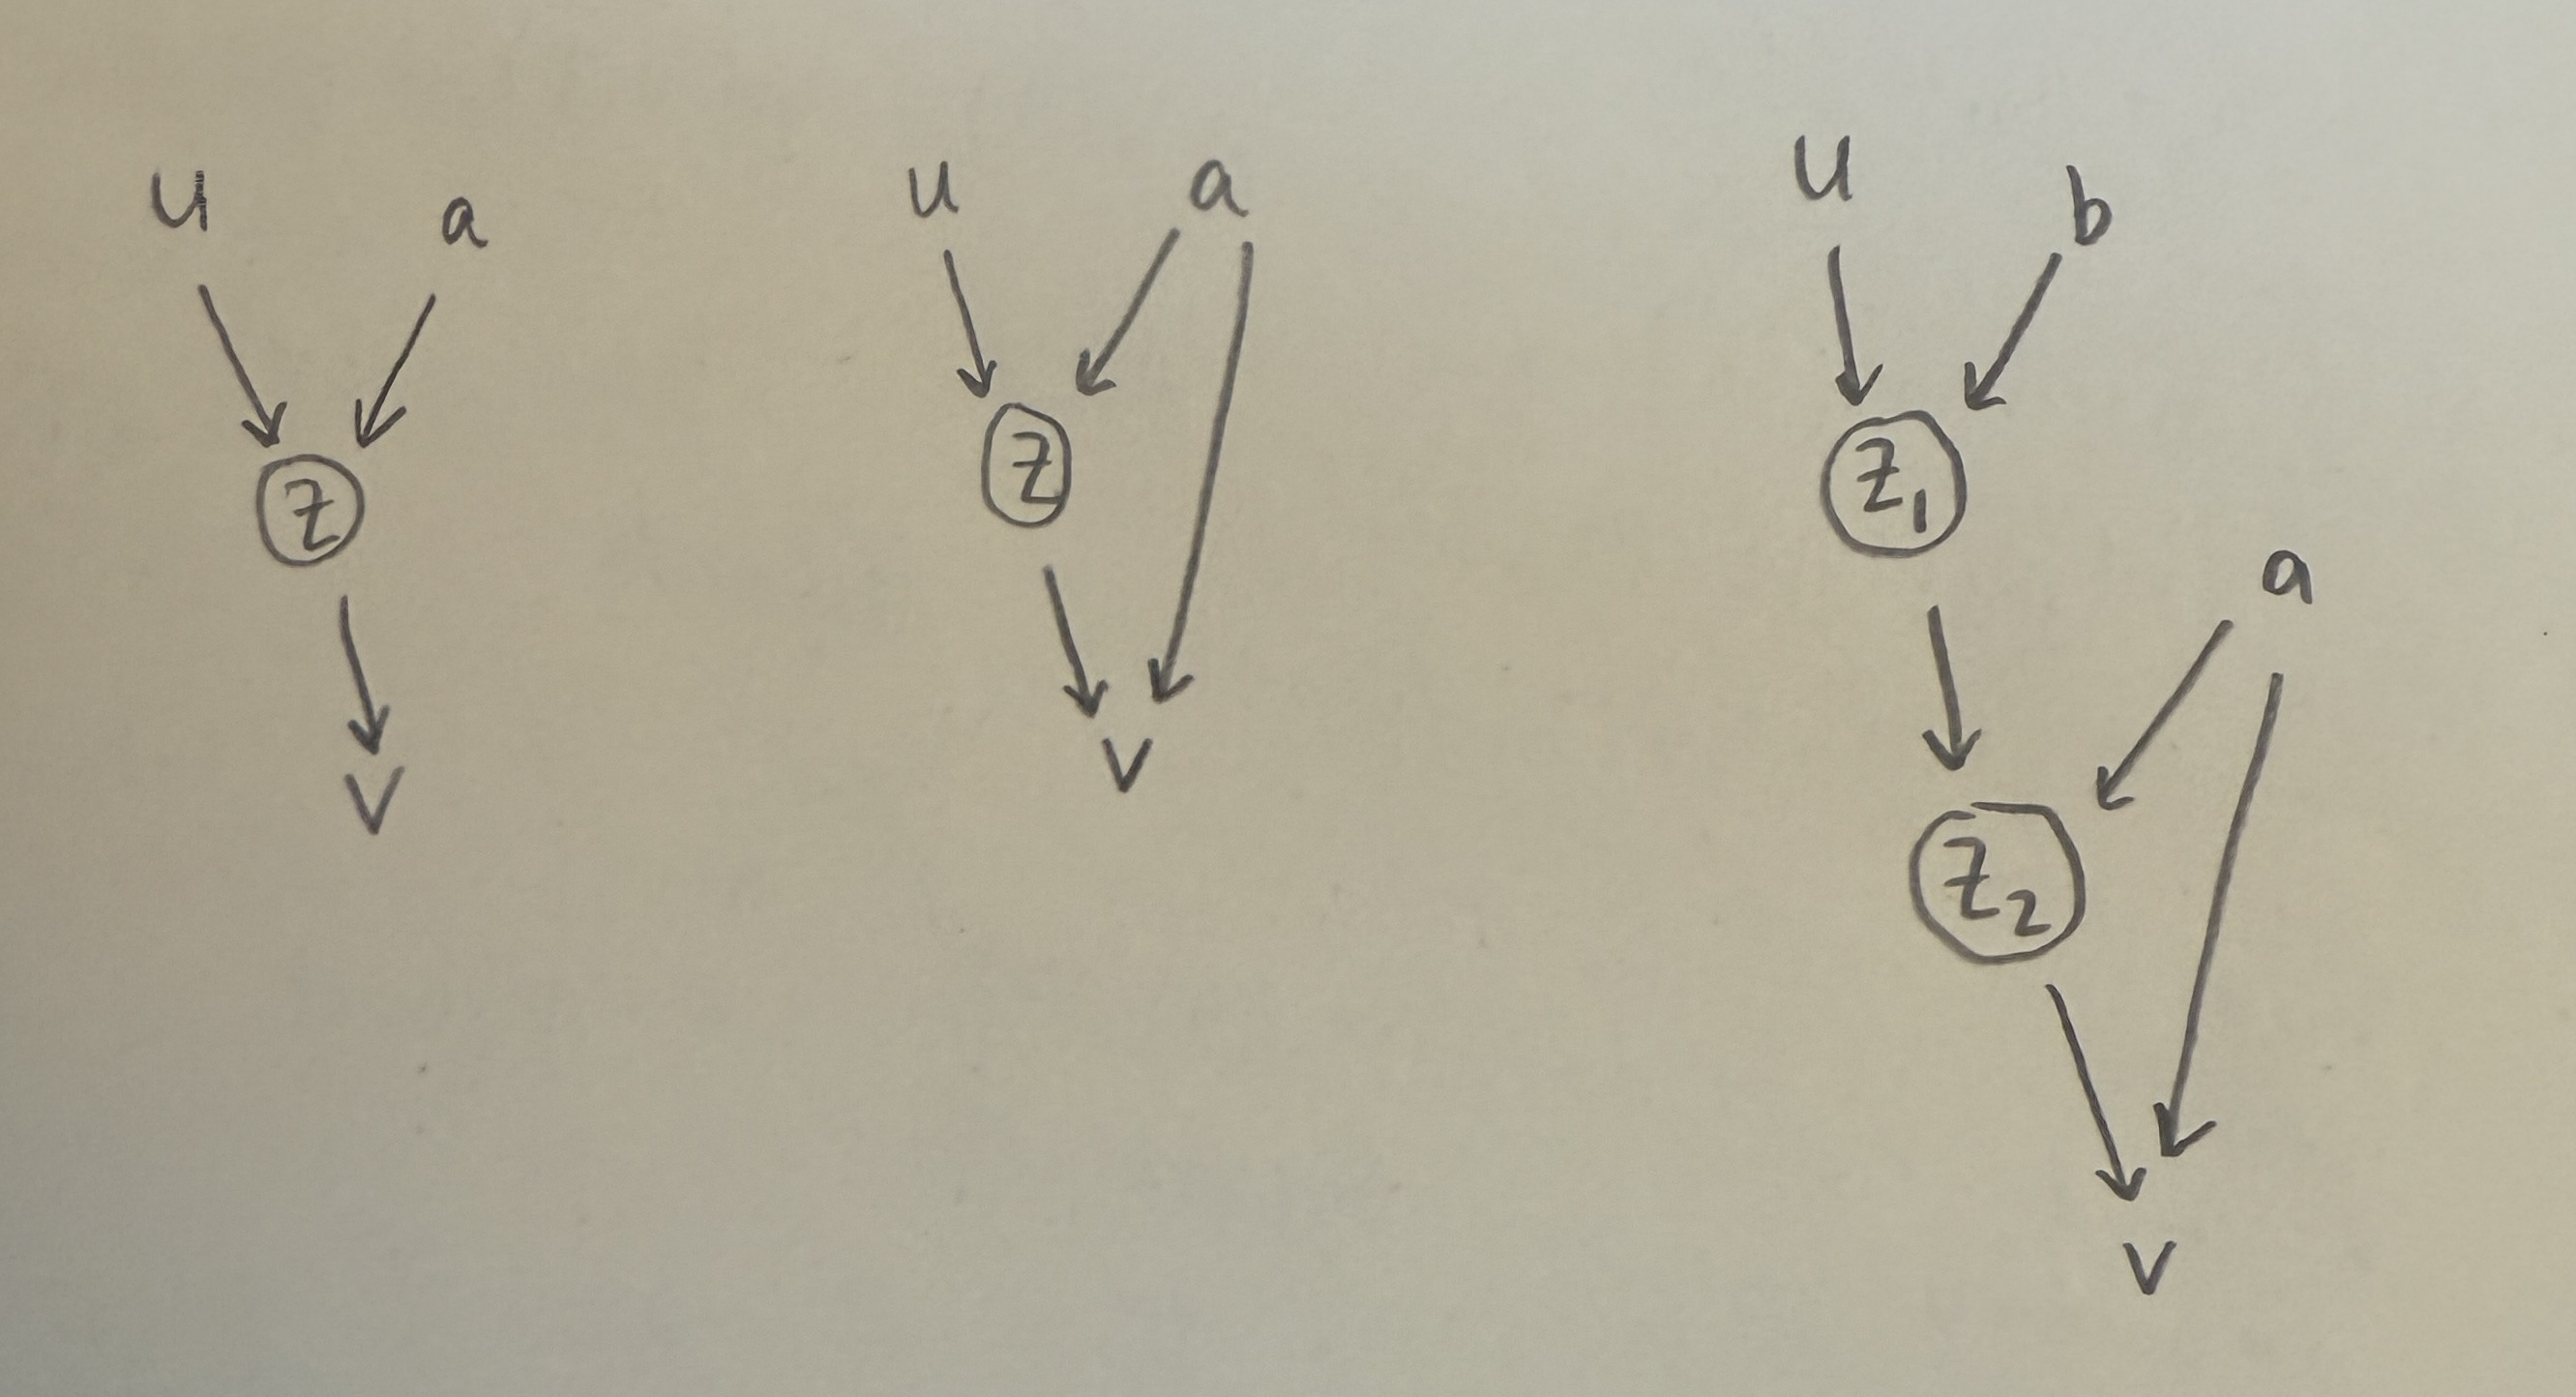 u a
z
v
u a
z
v
u b
z1
a
z2
v